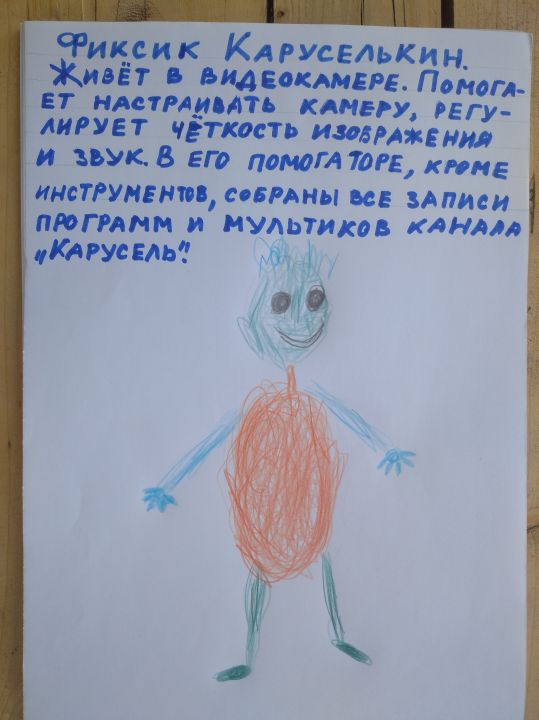 Фиксик КарусельКин.
Живёт в видеокамере. Помога-
ет настраивать камеру, регу-
лирует чёткость изображения
и звук. В его помогаторе, кроме
инструментов, собраны все записи
программ и мультиков канала
„Карусель".